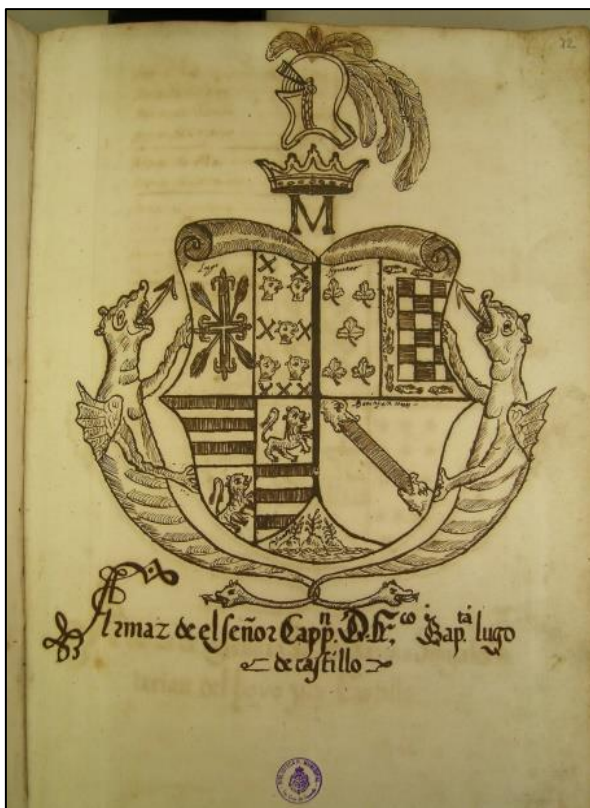 32
M
Lugo
Armaz de el señor Cappⁿ. D. Frᶜᵒ Bap.ᵗᵃ lugo
de castillo